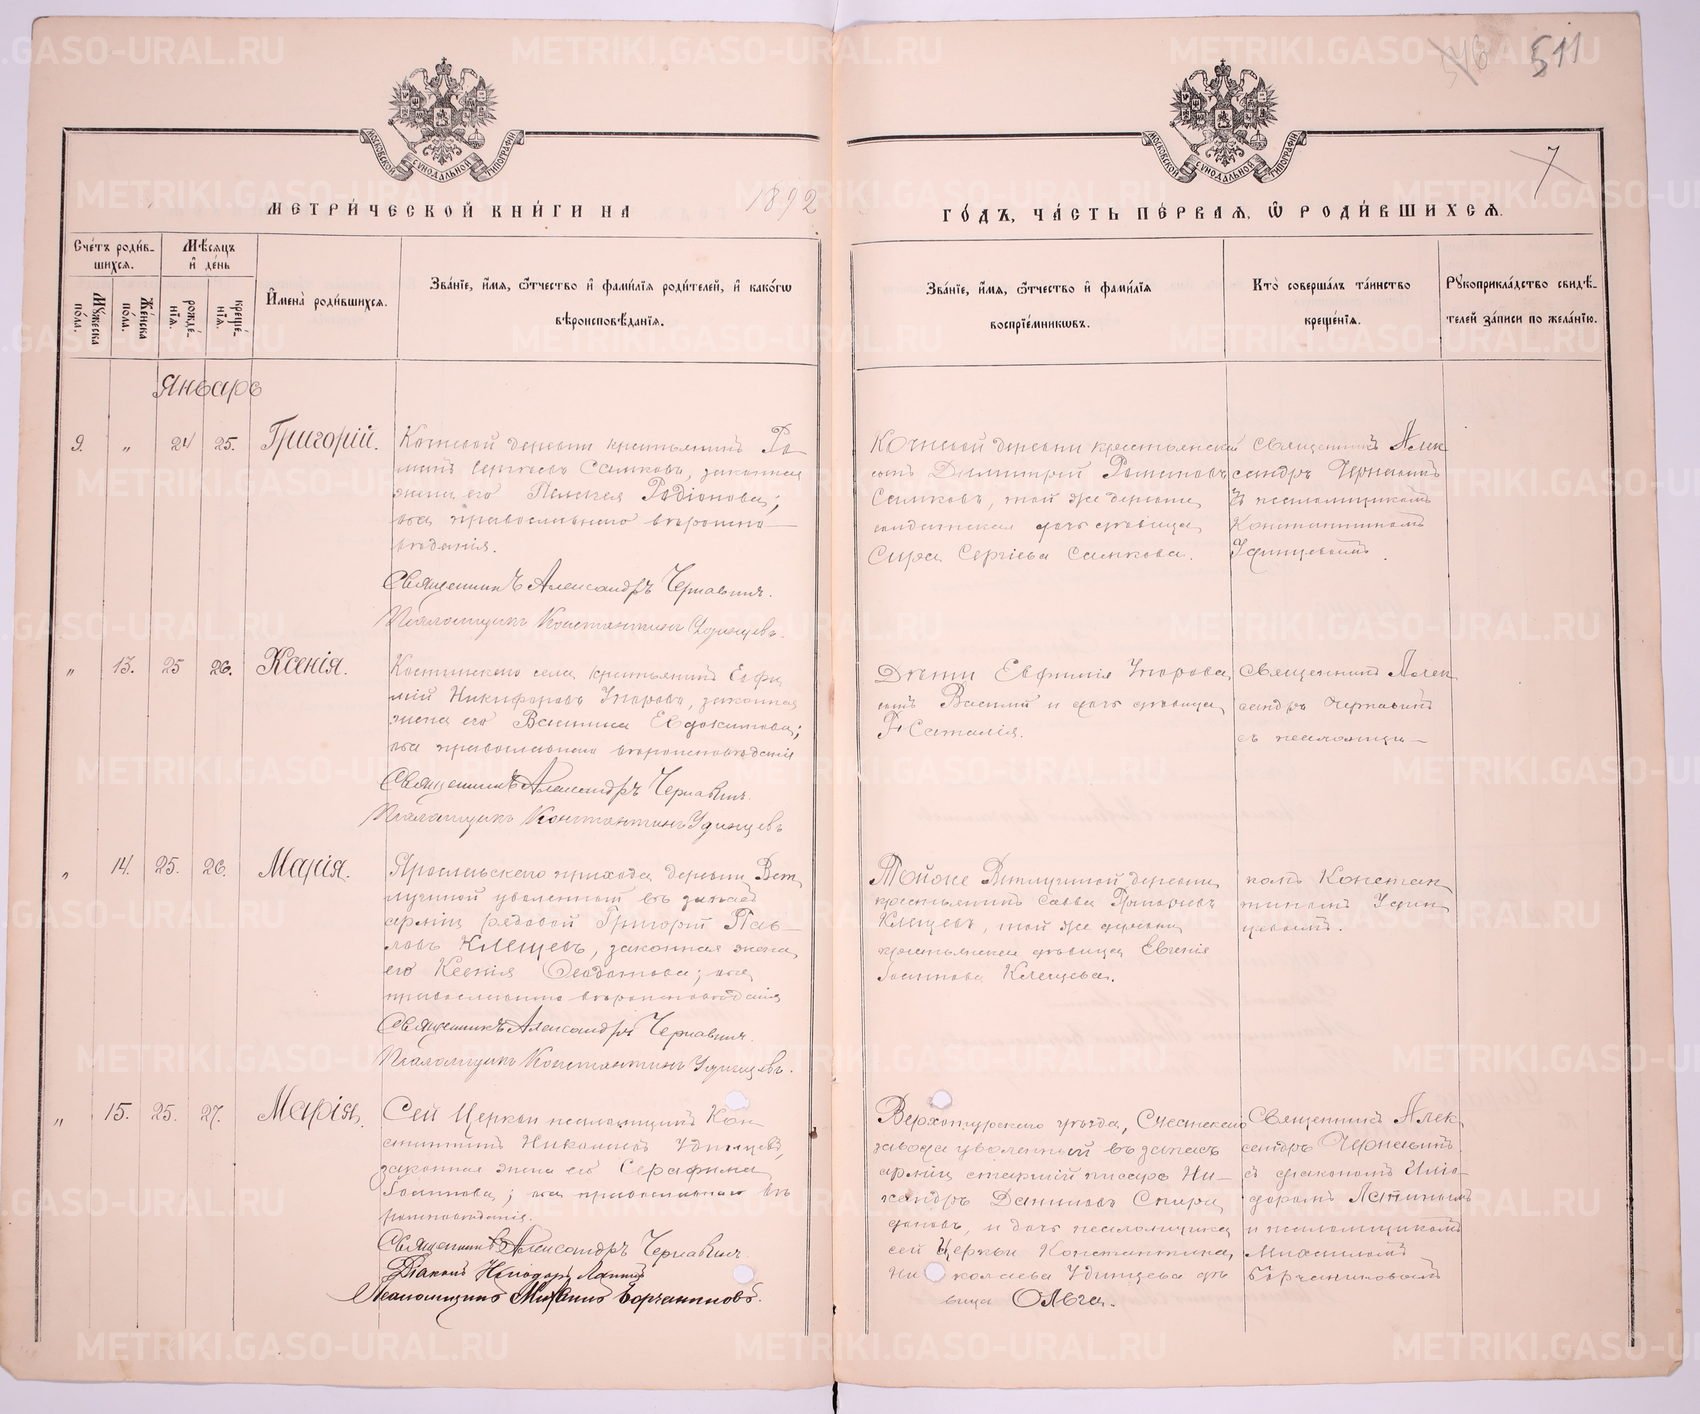 546 511
7
МОСКОВСКОЙ СѴНОДАЛЬНОЙ ТИПОГРАФІИ
МОСКОВСКОЙ СѴНОДАЛЬНОЙ ТИПОГРАФІИ
МЕТРИ́ЧЕСКОЙ КНИ́ГИ НА 1892 ГО́ДЪ, ЧА́СТЬ ПЕ́РВАЯ, Ѡ РОДИ́ВШИХСѦ.
Сче́тъ роди́в-
шихсѧ.
Мꙋ́жеска по́ла.
Же́нска по́ла.
Мѣ́сѧцъ и҆ де́нь
рожде́-нїѧ.
креще́-нїѧ.
И҆мена̀ роди́вшихсѧ.
Зва́нїе, и҆́мѧ, ѻ҆́тчество и҆ фами́лїѧ роди́телей, и҆ како́гѡ
вѣроисповѣ́данїѧ.
Зва́нїе, и҆́мѧ, ѻ҆́тчество и҆ фами́лїѧ
воспрїе́мникѡвъ.
Кто̀ соверша́лъ та́инство
креще́нїѧ.
Рꙋкоприкла́дство свидѣ́-
телей за́писи по жела́нїю.
Январь
9. „ 24 25. Григорій.
Кочневой деревни крестьянинъ Ро-
манъ Сергѣевъ Самковъ, законная
жена его Пелагея Родіонова;
оба православнаго вѣроиспо-
вѣданія.
Священникъ Александръ Чернавинъ.
Псаломщикъ Константинъ Удинцевъ.
Кочневой деревни крестьянскій
сынъ Димитрій Романовъ
Самковъ, той же деревни
солдатская дочь дѣвица
Сергіева Самкова.
Священникъ Алек
сандръ Чернавинъ
съ псаломщикомъ
Константиномъ
Удинцевымъ.
„ 13. 25 26. Ксенія.
Костинскаго села крестьянинъ Евфи
мій Никифоровъ Упоровъ, законная
жена его Васса Евдокимова;
оба православнаго вѣроисповѣданія
Священникъ Александръ Чернавинъ.
Псаломщикъ Константинъ Удинцевъ
Дѣти Евфимія Упорова,
сынъ Василій и дочь дѣвица
Наталія.
Священникъ Алек
сандръ Чернавинъ
съ псаломщи-
„ 14. 25. 26. Марія.
Ярославскаго прихода деревни Вет
лугиной уволенный въ запасъ
арміи рядовой Григорій Пав-
ловъ Клещевъ, законная жена
его Ксенія Ѳеодотова; оба
православнаго вѣроисповѣданія
Священникъ Александръ Чернавинъ.
Псаломщикъ Константинъ Удинцевъ.
Тойже Ветлугиной деревни
крестьянинъ Савва Григорьевъ
Клещевъ, той же деревни
крестьянская дѣвица Евгенія
Іоаннова Клещева.
комъ Констан
тиномъ Удин
цевымъ.
„ 15. 25. 27. Марія.
Сей Церкви псаломщикъ Кон
стантинъ Николаевъ Удинцевъ,
законная жена его Серафима
Іоаннова; оба православнаго вѣ
роисповѣданія.
Священникъ Александръ Чернавинъ.
Діаконъ Иліодоръ Лапинъ
Псаломщикъ Михаилъ Борчаниновъ.
Верхотурскаго уѣзда,
завода уволенный въ запасъ
арміи старшій писарь Ни-
кандръ Даниловъ Спири
доновъ, и дочь псаломщика
сей Церкви Константина
Николаева Удинцева дѣ
вица Ольга.
Священникъ Алек
сандръ Чернавинъ
съ діакономъ Иліо-
доромъ Лапинымъ
и псаломщикомъ
Михаиломъ
Борчаниновымъ